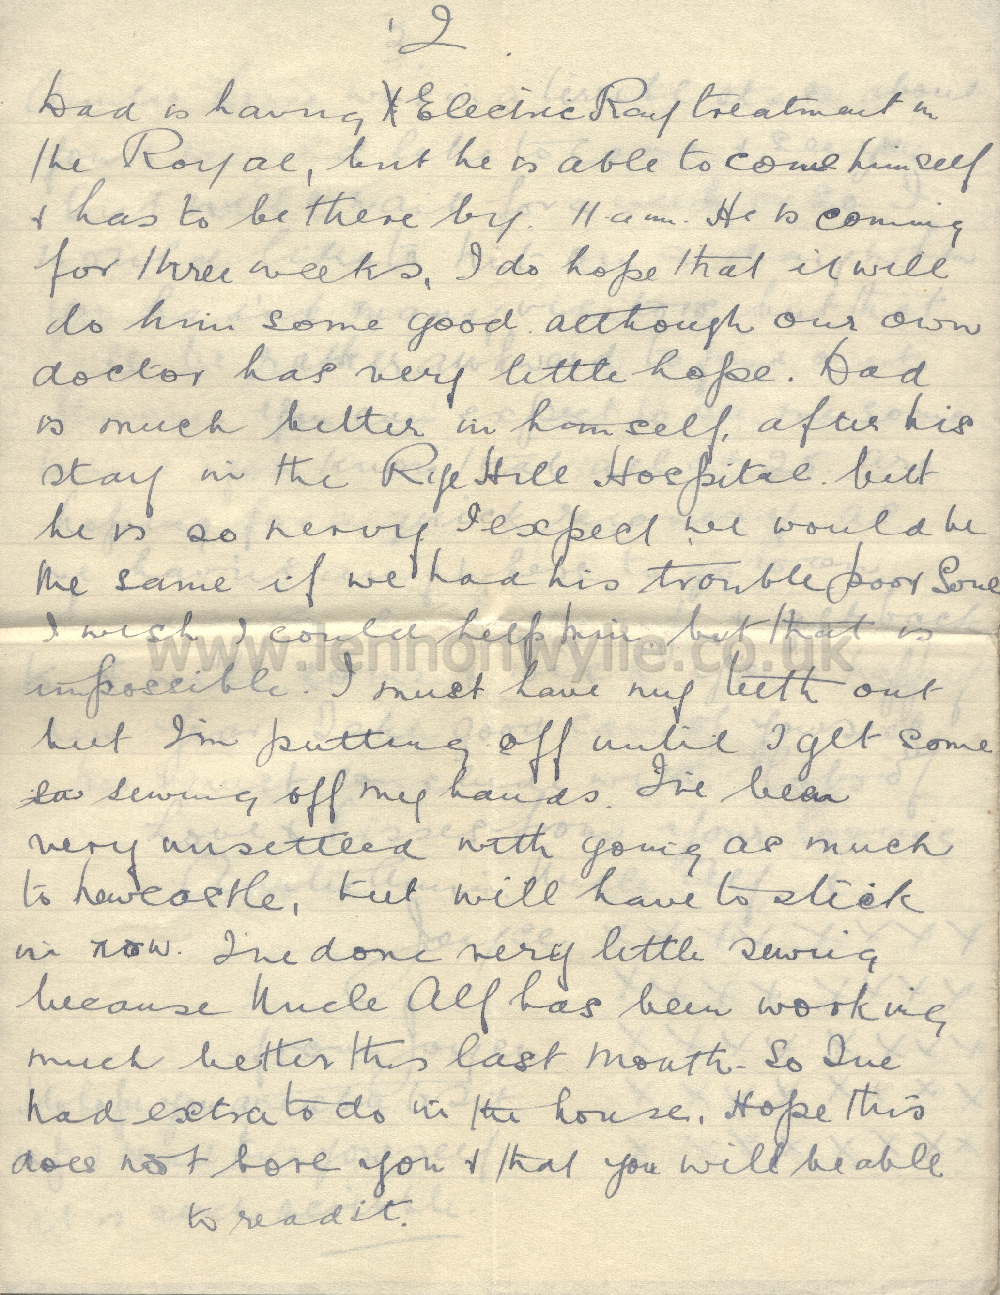 2
Dad is having X Electric Ray treatment in
the Royal, but he is able to come himself
& has to be there by. 11 a.m. He is coming
for three weeks, I do hope that it will
do him some good. although our own
doctor has very little hope. Dad
is much better in himself, after his
stay in the Rye Hill Hospital. but
he is so nervy I expect we would be
the same if we had his trouble poor Soul
I wish I could help him but that is
www.lennonwylie.co.uk
impossible. I must have my teeth out
but I'm putting off until I get some
sewing off my hands. I've bean
very unsettled with going as much
to Newcastle, but will have to stick
in now. I've done very little sewing
because Uncle Alf has been working
much better this last month. So I've
had extra to do in the house. Hope this
does not bore you & that you will be able
to read it.